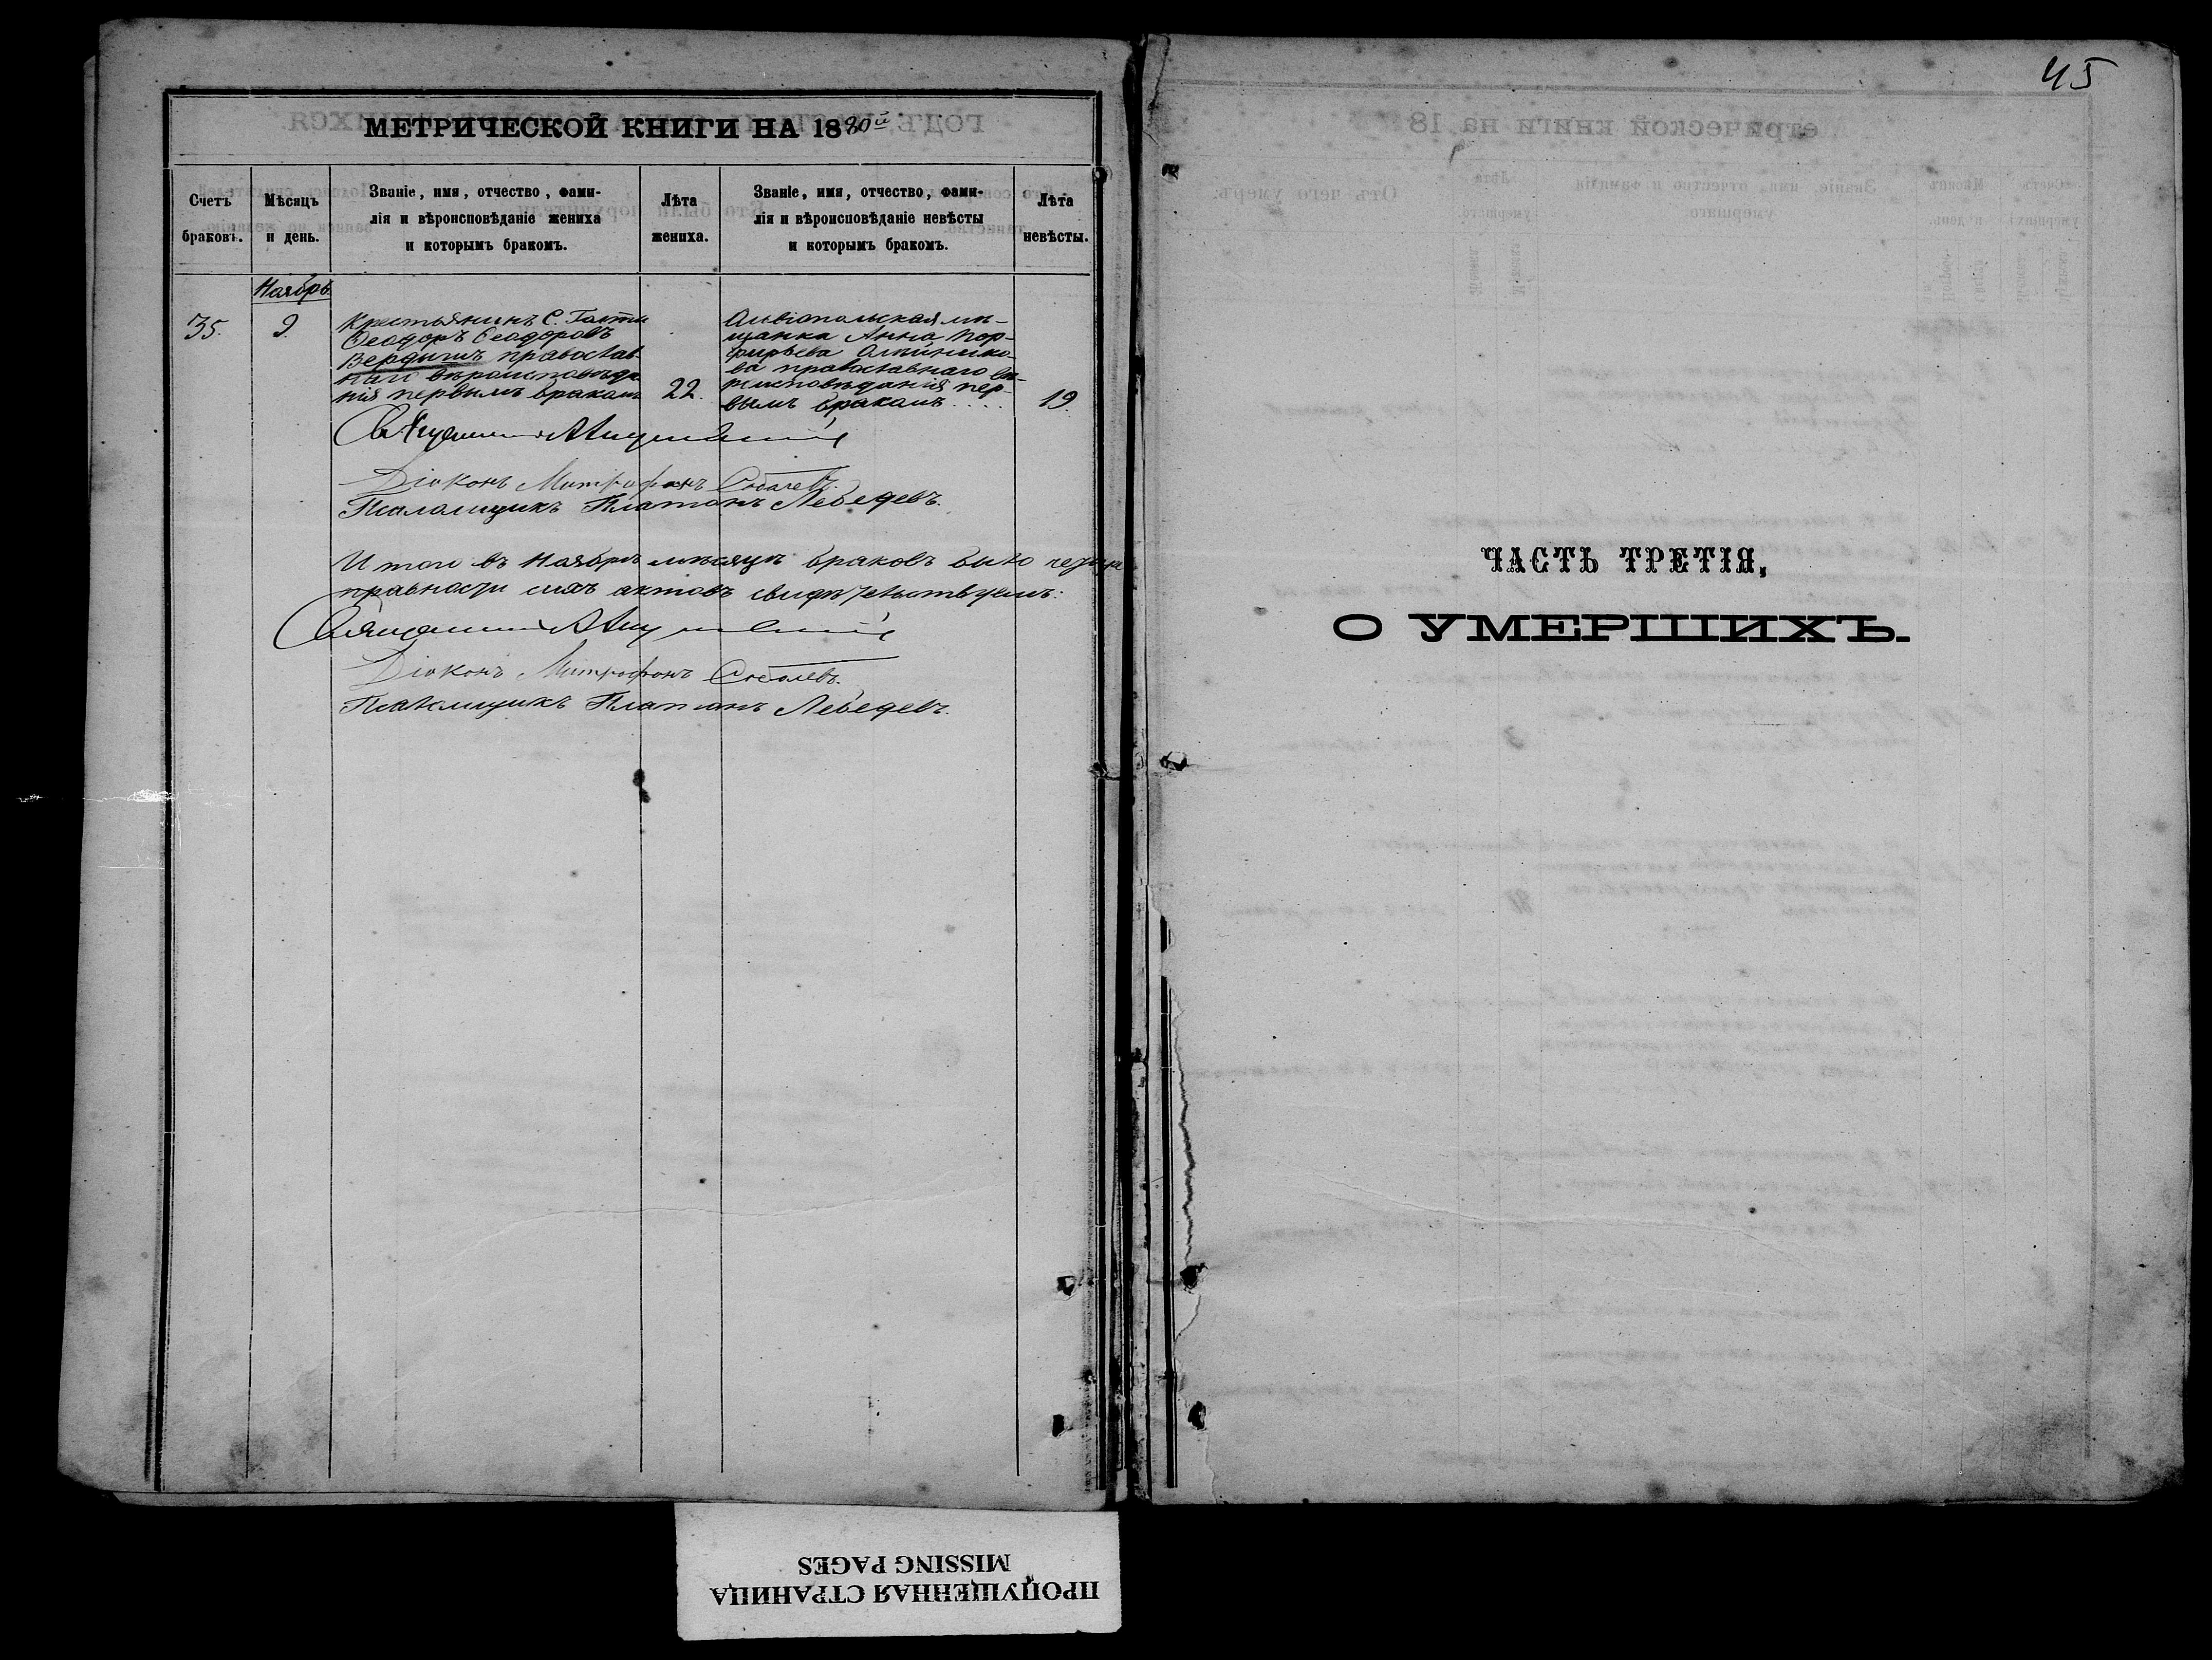 МЕТРИЧЕСКОЙ КНИГИ НА 1880й
Счетъ браковъ.
Мѣсяцъ и день.
Званіе, имя, отчество, фами-
лія и вѣроисповѣданіе жениха
и которымъ бракомъ.
Лѣта жениха.
Званіе, имя, отчество, фами-
лія и вѣроисповѣданіе невѣсты
и которымъ бракомъ.
Лѣта невѣсты.
Ноябрь
35.
9.
Крестьянинъ С.
Ѳеодоръ Ѳеодоровъ
православ
наго вѣроисповѣда
нія первымъ бракомъ
22.
Ольвіопольская мѣ-
щанка Анна Пор-
фирьева
ва православнаго вѣ-
роисповѣданія пер-
вымъ бракомъ....
19.
Священникъ
Діаконъ Митрофанъ Соболевъ.
Псаломщикъ Платонъ Лебедевъ.
Итого въ Ноябрѣ мѣсяцѣ браковъ было
правности сихъ актовъ свидѣтельствуемъ:
Священникъ
Діаконъ Митрофанъ Соболевъ.
Псаломщикъ Платонъ Лебедевъ.
45
ЧАСТЬ ТРЕТІЯ,
О УМЕРШИХЪ.
ПРОПУЩЕННАЯ СТРАНИЦА
MISSING PAGES